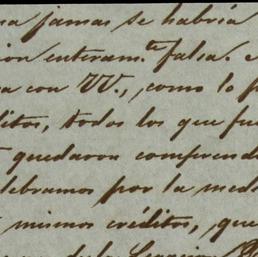 jamas se habria
enteram.te falsa.
con VV., como lo
todos los que
quedaron comprend
lebramos por la med
mismos créditos, que
de la